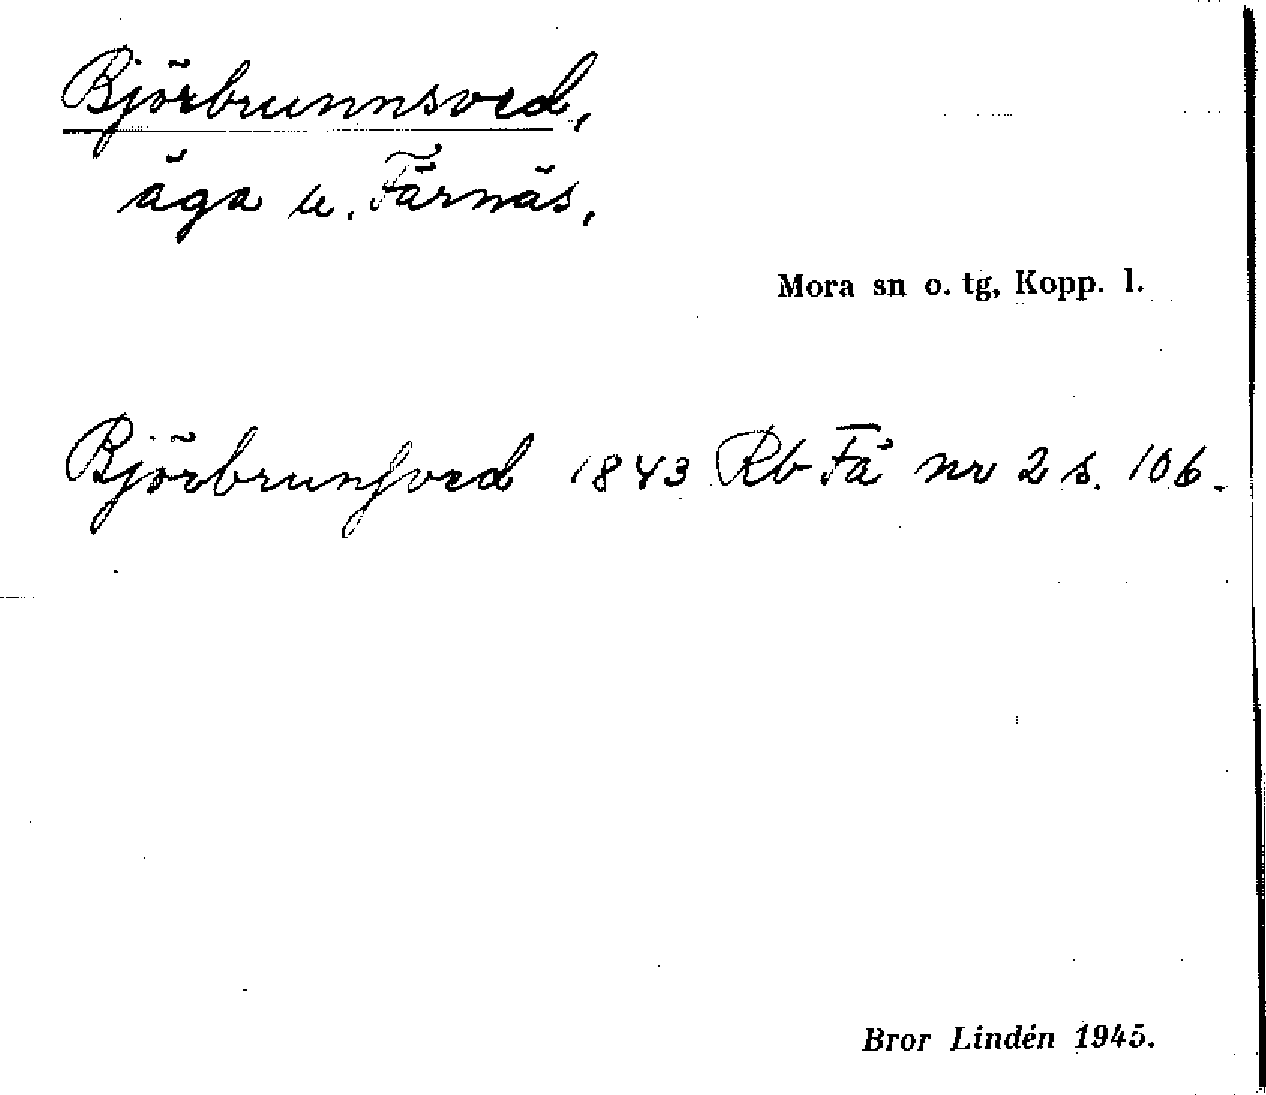 Björbrunnsved,
äga u. Färnäs,
Mora sn o. tg, Kopp. l.
Björbrunſved 1843 Rb Fä nr 2 s. 106.
Bror Lindén 1945.